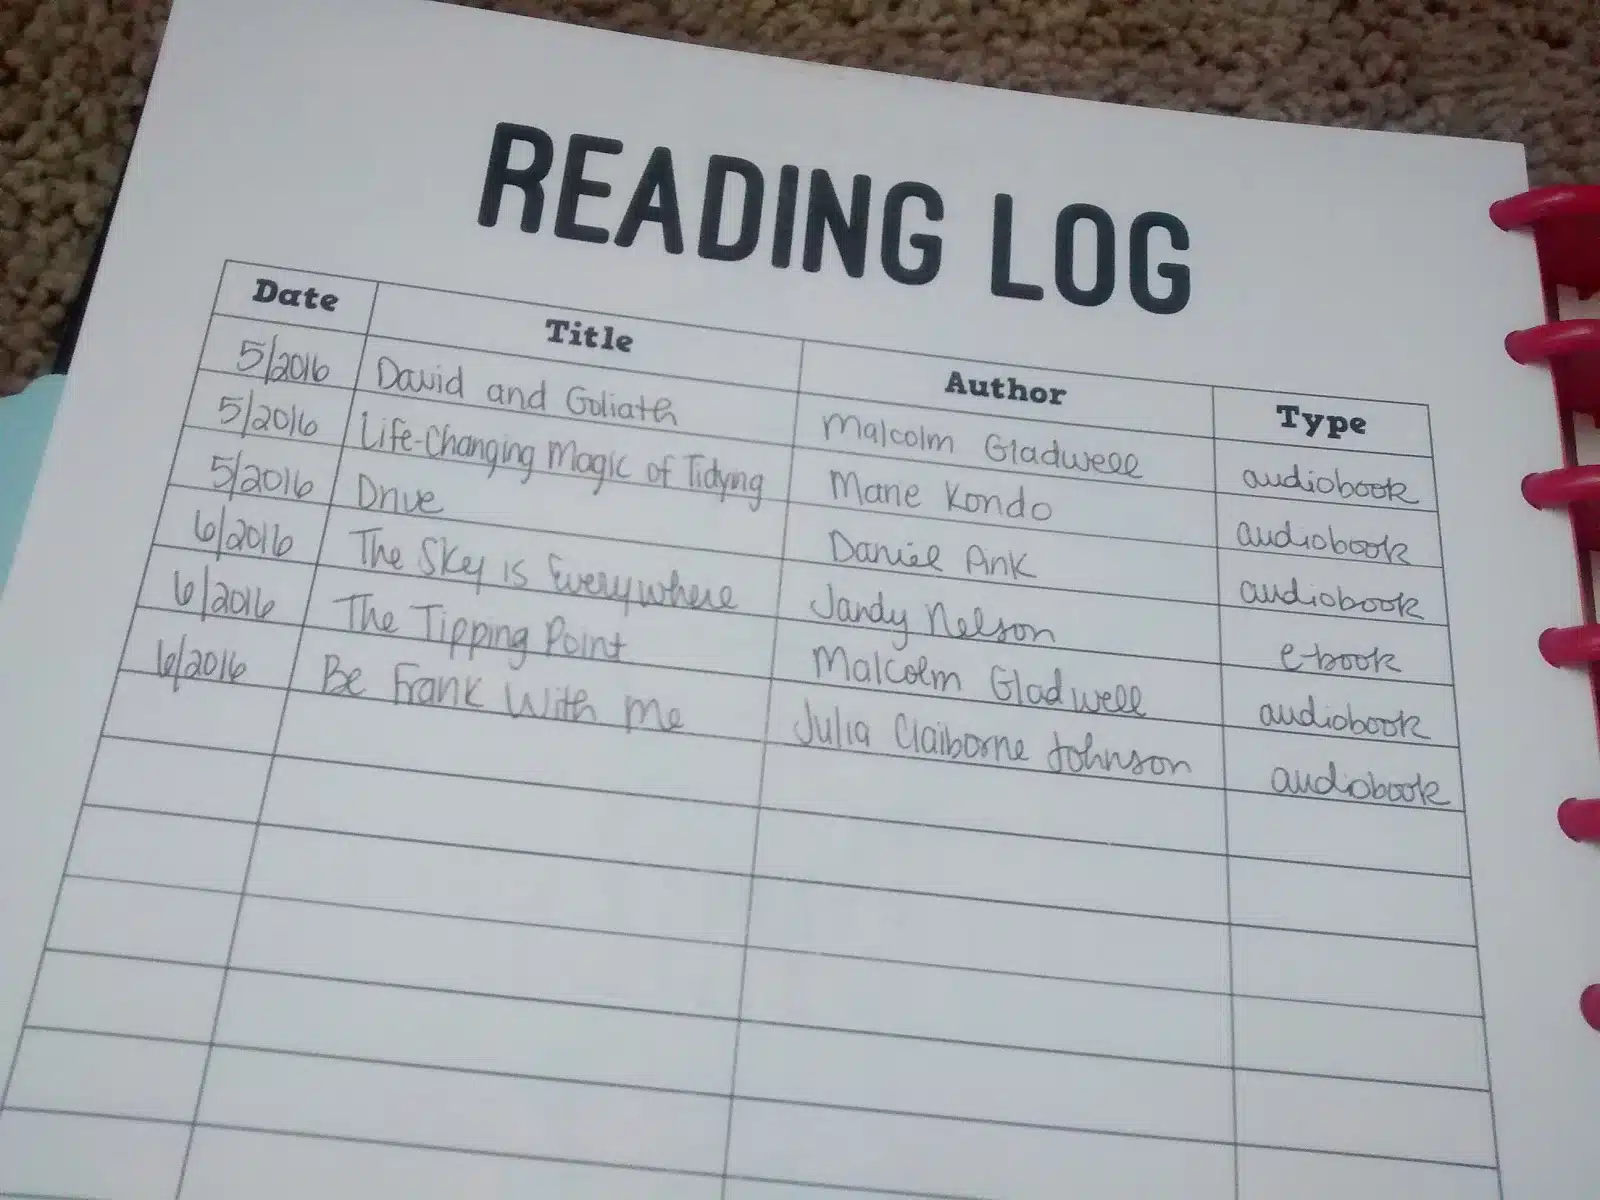 READING LOG
Date Title Author Type
5/2016 David and Goliath Malcolm Gladwell audiobook
5/2016 Life-Changing Magic of Tidying Marie Kondo audiobook
5/2016 Drive Daniel Pink audiobook
6/2016 The Sky is Everywhere Jandy Nelson e-book
6/2016 The Tipping Point Malcolm Gladwell audiobook
6/2016 Be Frank With Me Julia Claiborne Johnson audiobook